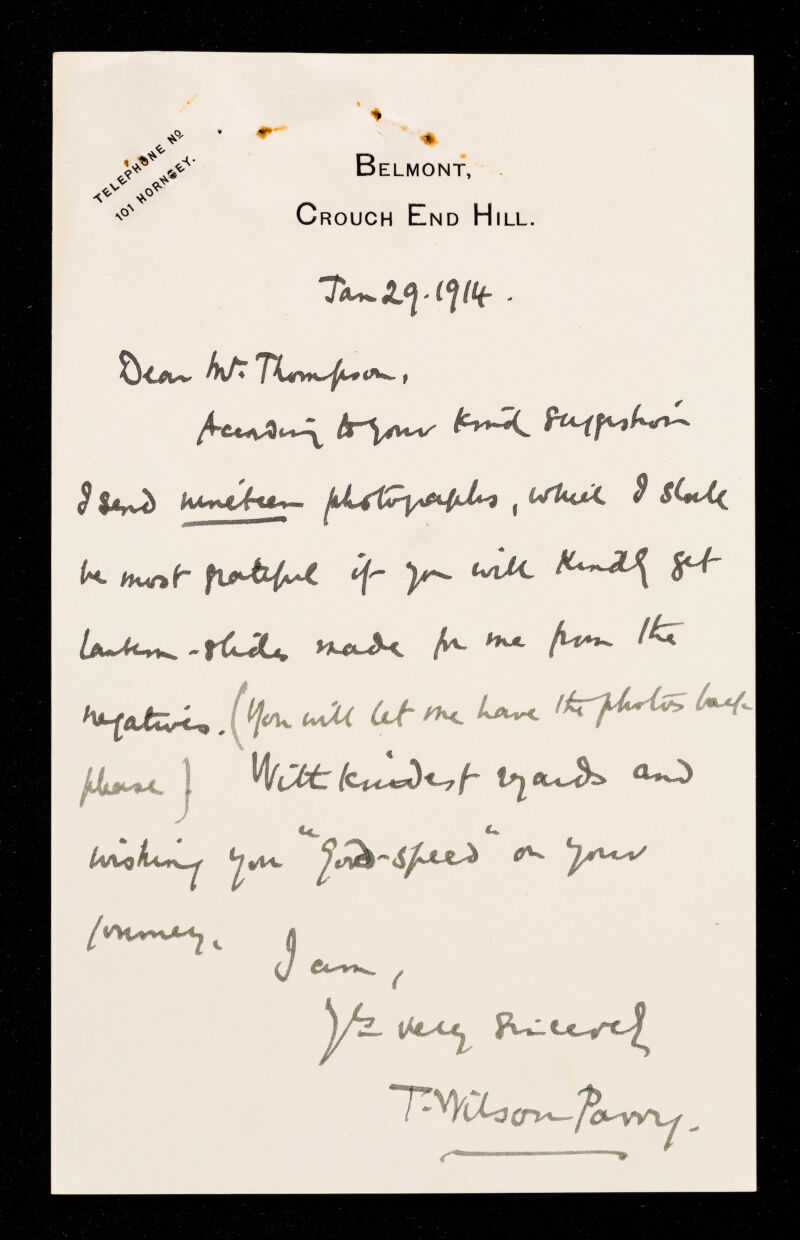 TELEPHONE No
101 HORNSEY.
BELMONT,
CROUCH END HILL.
Jan 29. 1914.
Dear Mr. Thompson,
According to your kind suggestion
I send nineteen photographs, which I shall
be most grateful if you will kindly get
lantern-slides made for me from the
negatives. (You will let me have the photos back
please) With kindest regards and
wishing you "God-speed" on your
journey.
I am,
Yrs very sincerely
T. Wilson Parry.